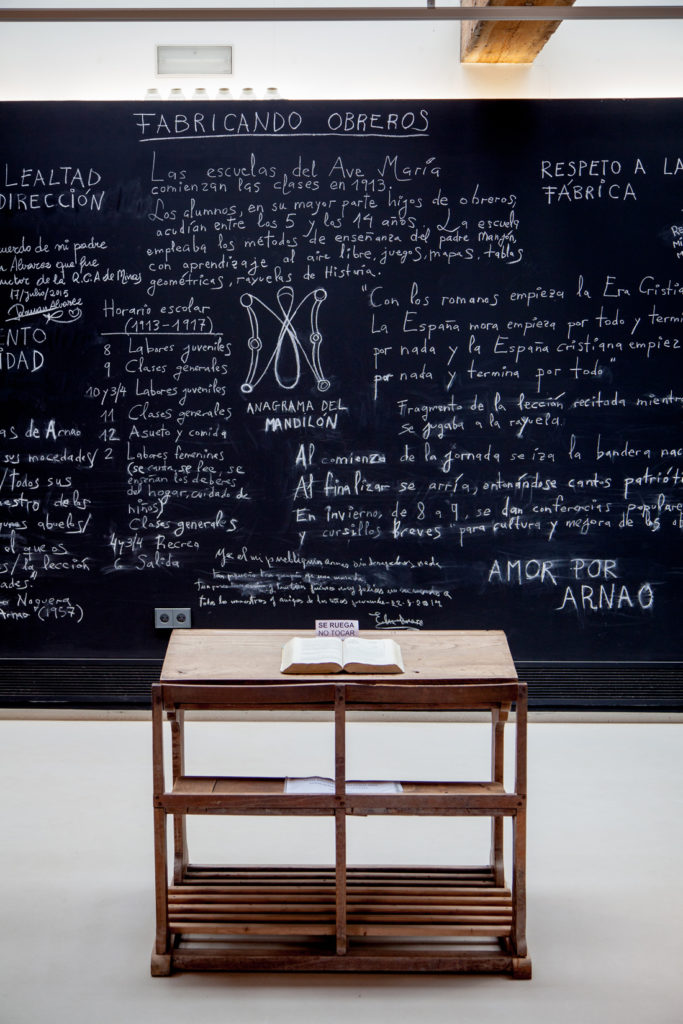 FABRICANDO OBREROS
LEALTAD
DIRECCIÓN
Las escuelas del Ave María
comienzan las clases en 1913.
Los alumnos, en su mayor parte hijos de obreros,
acudían entre los 5 y los 14 años. La escuela
empleaba los métodos de enseñanza del padre Manjón,
con aprendizaje al aire libre, juegos, mapas, tablas
geométricas, rayuelas de Historia.
RESPETO A LA
FÁBRICA
de mi padre
Alvarez que fue
de la R.C.A de Minas
17/julio/2015
Horario escolar
(1913-1917)
8 Labores juveniles
9 Clases generales
10 y 3/4 Labores juveniles
11 Clases generales
12 Asueto y comida
2 Labores femeninas
(se canta, se lee, se
enseñan los deberes
del hogar, cuidado de
niños)
Clases generales
4 y 3/4 Recreo
6 Salida
ANAGRAMA DEL
MANDILÓN
"Con los romanos empieza la Era
La España mora empieza por todo y
por nada y la España cristiana
por nada y termina por todo"
Fragmento de la lección recitada
se jugaba a la rayuela.
Al comienzo de la jornada se iza la bandera
Al finalizar se arría, entonándose cantos
En Invierno, de 8 a 9, se dan conferencias
y cursillos breves "para cultura y mejora de los
de Arnao
sus mocedades/
/todos sus
de los
abuels/
el que os
/ la lección
Noguera
Arnao" (1957)
AMOR POR
ARNAO
SE RUEGA
NO TOCAR